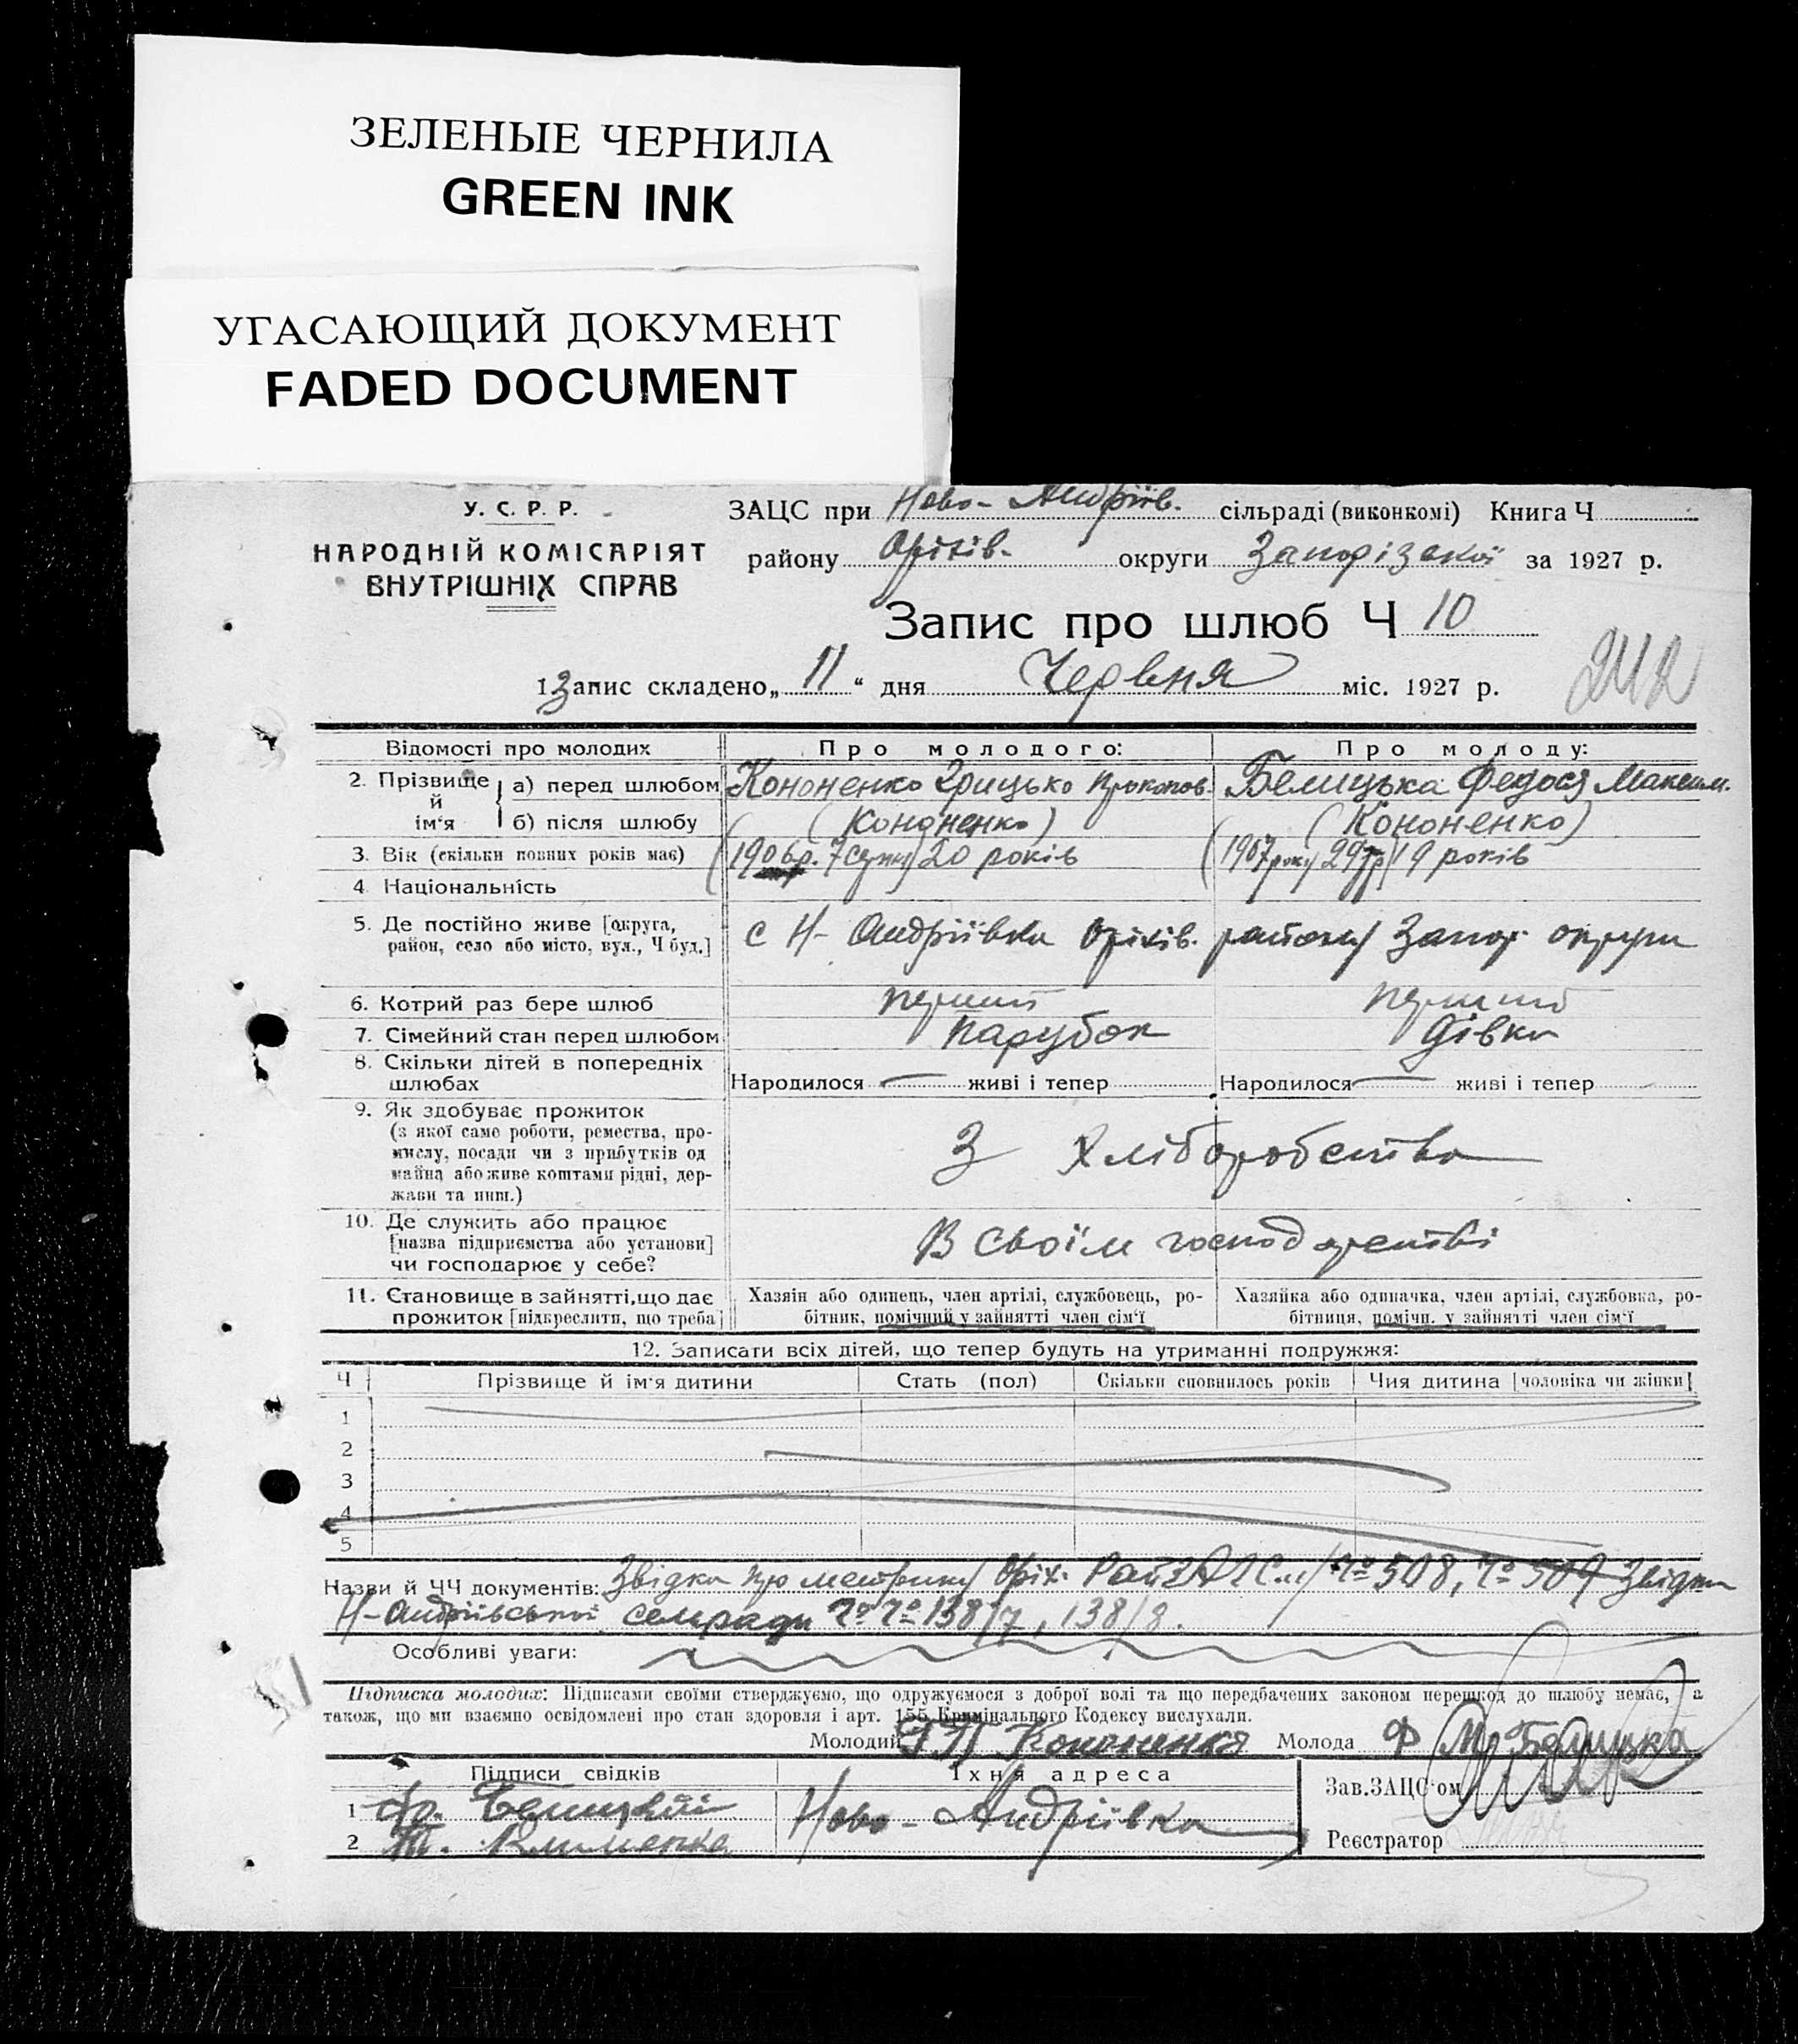 ЗЕЛЕНЫЕ ЧЕРНИЛА
GREEN INK
УГАСАЮЩИЙ ДОКУМЕНТ
FADED DOCUMENT
У. С. Р. Р.
НАРОДНІЙ КОМІСАРІЯТ
ВНУТРІШНІХ СПРАВ
ЗАЦС при Ново-Андріїв. сільраді (виконкомі) Книга Ч
району Оріхів. округи Запорізької за 1927 р.
Запис про шлюб Ч 10
1 Запис складено „ 11 “ дня Червня міс. 1927 р.
Відомості про молодих Про молодого: Про молоду:
2. Прізвище й ім'я а) перед шлюбом Кононенко Грицько Прокопов. Белицька Федося Максим.
б) після шлюбу (Кононенко) (Кононенко)
3. Вік (скільки повних років має) (1906 р. 7 ) 20 років (1907 року 29 ) 19 років
4. Національність
5. Де постійно живе [округа, район, село або місто, вул., Ч буд.] с Н-Андріївка Оріхів. району Запор. округи
6. Котрий раз бере шлюб перший перший
7. Сімейний стан перед шлюбом парубок дівка
8. Скільки дітей в попередніх шлюбах Народилося — живі і тепер Народилося — живі і тепер
9. Як здобуває прожиток
(з якої саме роботи, ремества, про-
мислу, посади чи з прибутків од
майна або живе коштами рідні, дер-
жави та инш.)
З Хліборобства
10. Де служить або працює
[назва підприємства або установи]
чи господарює у себе?
В своїм господарстві
11. Становище в зайнятті, що дає
прожиток [підкреслити, що треба]
Хазяїн або одинець, член артілі, службовець, ро-
бітник, помічний у зайнятті член сім'ї
Хазяйка або одиначка, член артілі, службовка, ро-
бітниця, поміч. у зайнятті член сім'ї
12. Записати всіх дітей, що тепер будуть на утриманні подружжя:
Ч Прізвище й ім'я дитини Стать (пол) Скільки сповнилось років Чия дитина [чоловіка чи жінки]
1
2
3
4
5
Назви й ЧЧ документів: Звідки про метрику Оріх. РайЗАГСу № 508, № 509 Звідки
Н-Андріївської сельради №№ 138/7, 138/8.
Особливі уваги:
Підписка молодих: Підписами своїми стверджуємо, що одружуємося з доброї волі та що передбачених законом перешкод до шлюбу немає, а
також, що ми взаємно освідомлені про стан здоровля і арт. 155 Кримінального Кодексу вислухали.
Молодий ГП Кононенко Молода Ф М Белицька
Підписи свідків Їхня адреса
1 Белицький Ново-Андріївка
2 Клименко
Зав.ЗАЦС'ом
Реєстратор